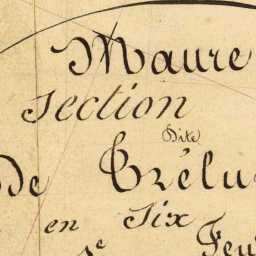 Maure
Section
Dite
De Trélu
en Six
Feu